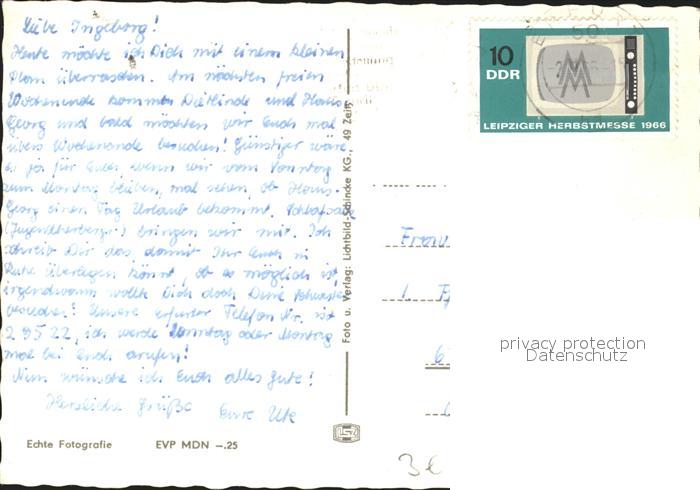 Liebe Ingeborg!
Heute möchte ich Dich mit einem kleinen
Plan überraschen. Am nächsten freien
Wochenende kommen Dietlinde und Hans-
Georg und bald möchten wir Euch mal
übers Wochenende besuchen! Günstiger wäre
es ja für Euch, wenn wir vom Sonntag
zum Montag bleiben, mal sehen, ob Hans-
Georg einen Tag Urlaub bekommt. Schlafsäcke
(Jugendherberge) bringen wir mit. Ich
schreib Dir das, damit Ihr Euch in
Ruhe überlegen könnt, ob es möglich ist,
irgendwann wollte Dich doch Deine Schwester
besuchen! Unsere Erfurter Telefon Nr. ist
2 95 22, ich werde Sonntag oder Montag
mal bei Euch anrufen!
Nun wünsche ich Euch alles Gute!
Herzliche Grüße Eure Ute
Echte Fotografie EVP MDN –.25
Foto u. Verlag: Lichtbild-Schincke KG., 49 Zeitz
50
10
DDR
LEIPZIGER HERBSTMESSE 1966
Frau
1.
6
privacy protection
Datenschutz
3€